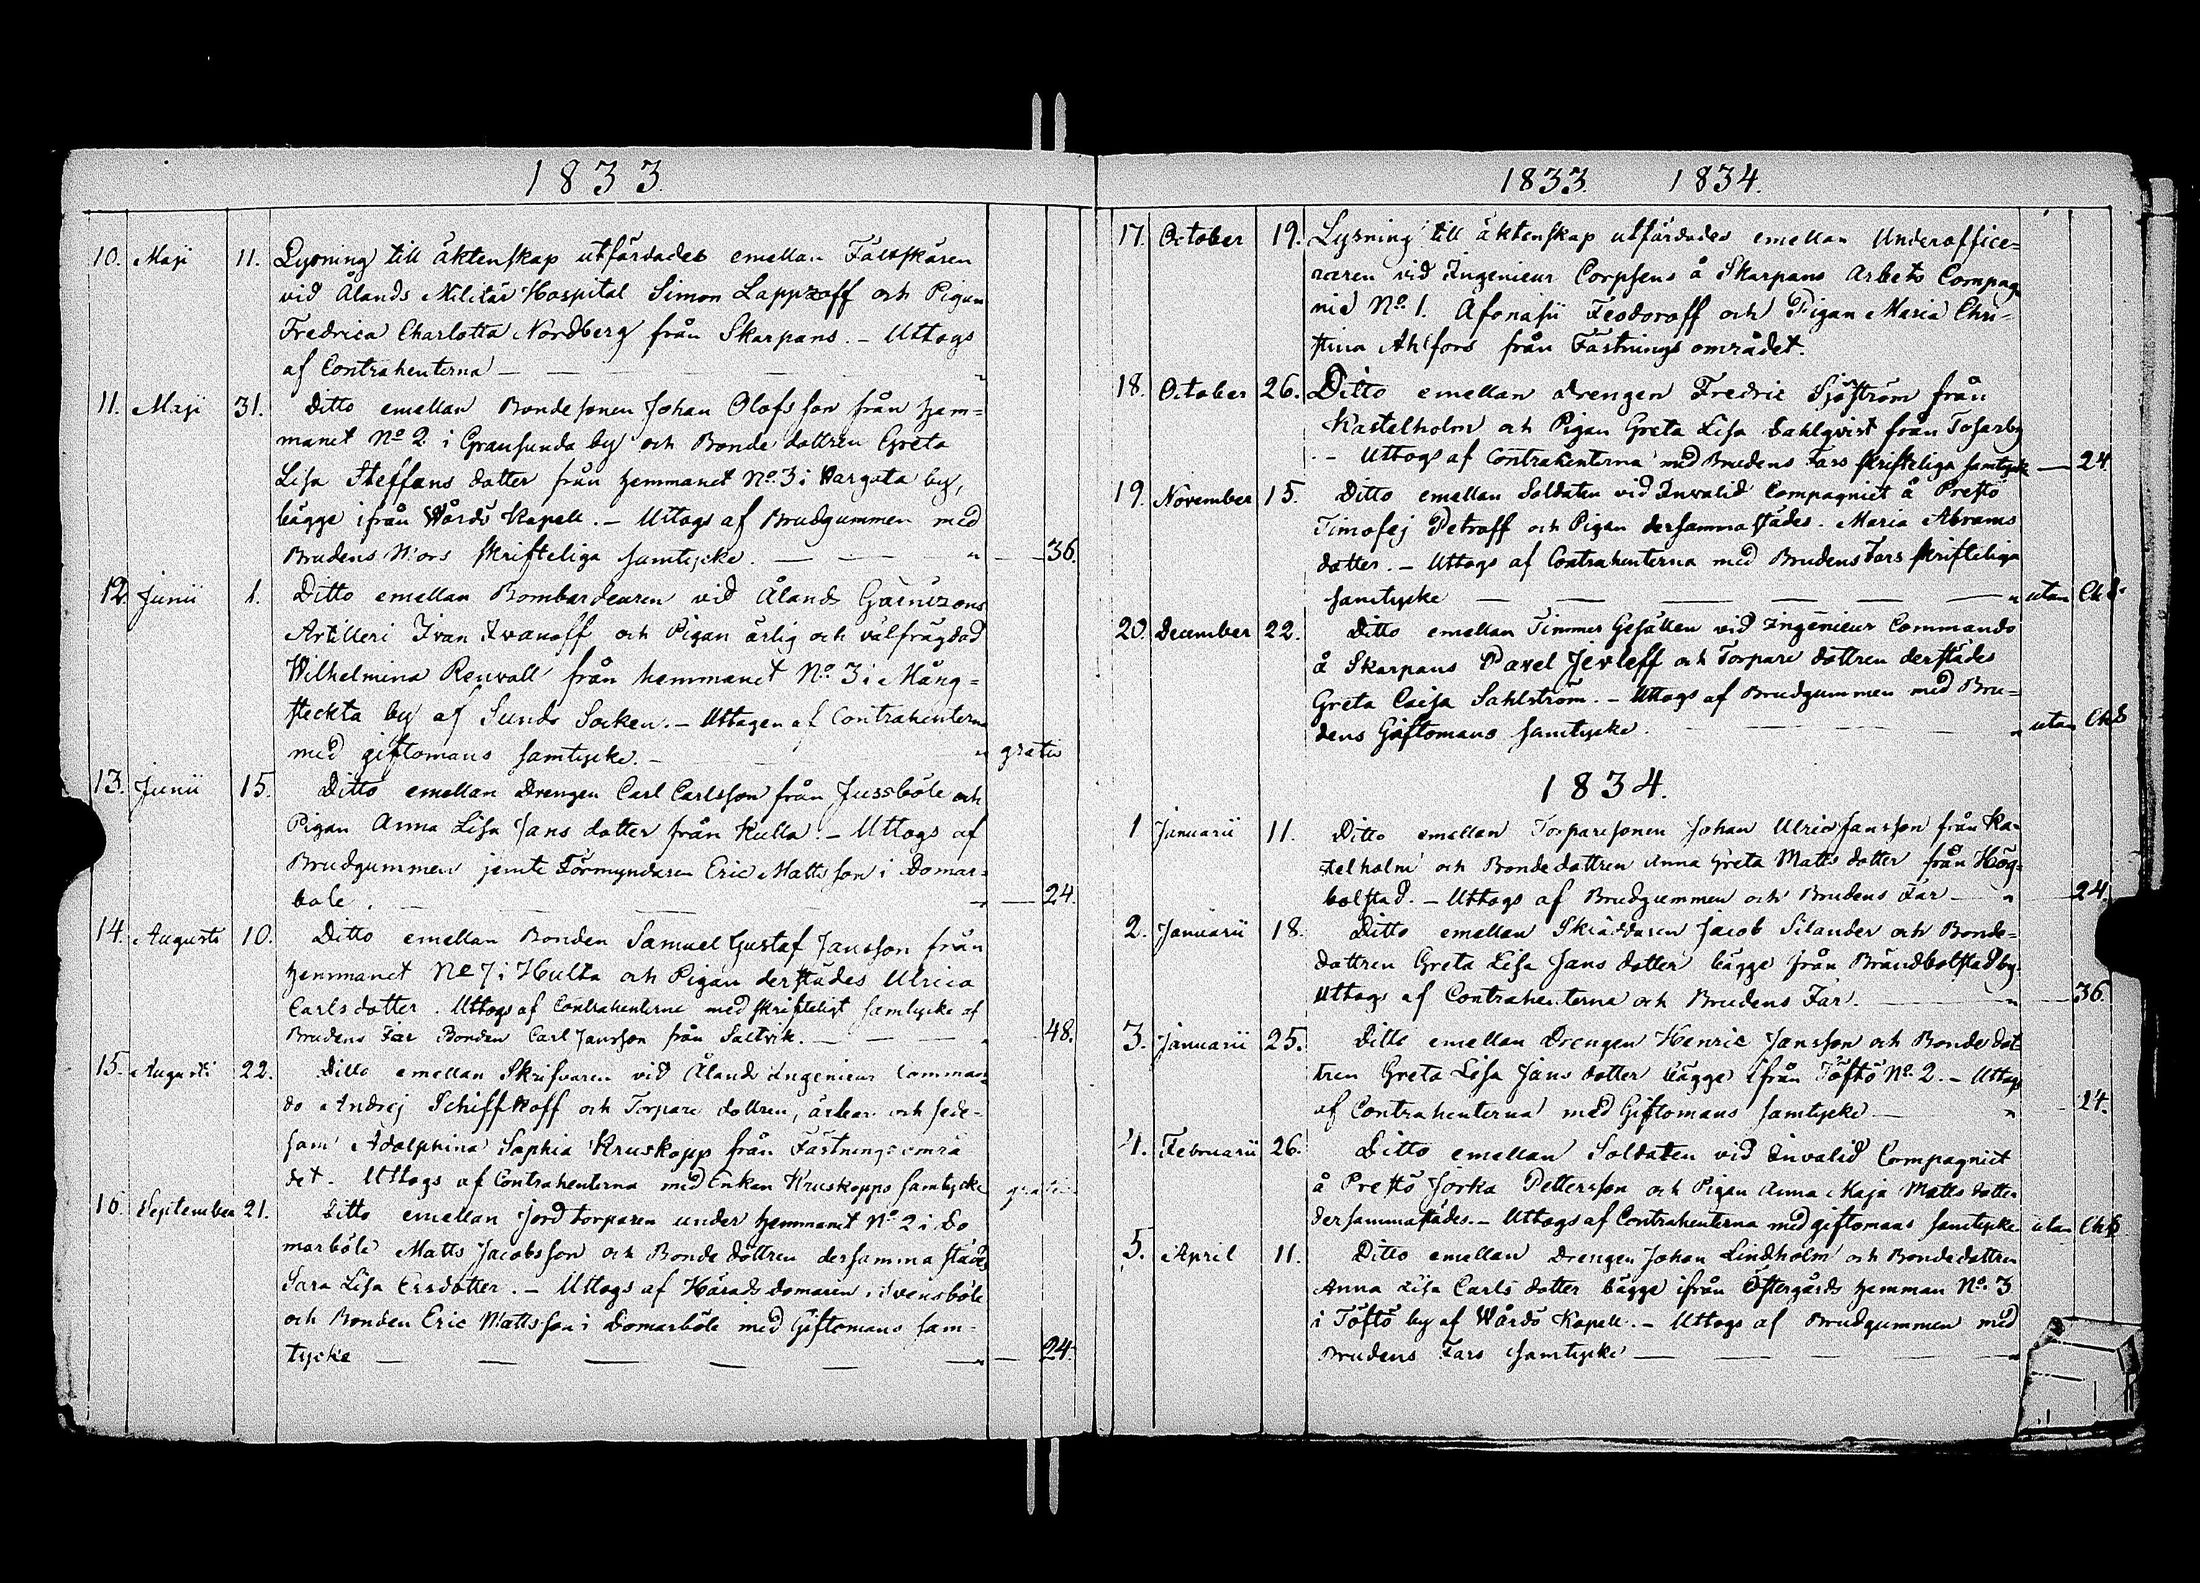 1833.
10. Maji 11. Lysning till äktenskap utfärdades emellan Fältskären
vid Ålands Militär Hospital Simon Lappzoff och Pigan
Fredrica Charlotta Nordberg från Skarpans. – Uttogs
af Contrahenterna — — — — — "
11. Maji 31. Ditto emellan Bondesonen Johan Olofsson från hem=
manet No 2 i Gransunda by och Bonde dottren Greta
Lisa Steffans dotter från hemmanet No. 3 i Wargata by,
bägge ifrån Wårdö Kapell. – Uttogs af Brudgummen med
Brudens Mors skrifteliga samtycke. — — " — 36.
12. Junii 1. Ditto emellan Bombardeuren vid Ålands Garnizons
Artilleri Ivan Ivanoff och Pigan ärlig och välfrägdad
Wilhelmina Renvall från hemmanet No. 3 i Mång=
steckta by af Sunds Socken. – Uttagen af Contrahenterna
med giftomans samtycke. — " gratis
13. Junii 15. Ditto emellan Drengen Carl Carlsson från Jussböle och
Pigan Anna Lisa Jans dotter från Kulla. – Uttogs af
Brudgummen jemte Förmyndaren Eric Mattsson i Domar=
böle. — — — " — 24.
14. Augusti 10. Ditto emellan Bonden Samuel Gustaf Jansson från
hemmanet No 7 i Hulta och Pigan derstädes Ulrica
Carlsdotter. Uttogs af Contrahenterne med skrifteligt samtycke af
Brudens Far Bonden Carl Jansson från Saltvik. — — — " 48.
15. Augusti 22. Ditto emellan Skrifvaren vid Ålands Ingenieur Comman=
do Andrej Schiffkoff och Torpare dottren, ärbar och sede-
sam Adolphina Sophia Kruskopp från Fästningsområ
det. Uttogs af Contrahenterna med Enkan Kruskopps samtycke gratis
16. September 21. Ditto emellan Jordtorparen under hemmanet No. 2 i Do
marböle Matts Jacobsson och Bonde dottren dersamma städes
Sara Lisa Ersdotter. – Uttogs af Härads domaren i Svensböle
och Bonden Eric Mattsson i Domarböle med Giftomans sam-
tycke — — — — — " — 24.
1833. 1834.
17. October 19. Lysning till äktenskap utfärdades emellan Underoffice=
raren vid Ingenieur Corpsens å Skarpans Arbets Compag
nie No. 1. Afonasii Feodoroff och Pigan Maria Chri-
stina Ahlfors från Fästnings området.
18. October 26. Ditto emellan drengen Fredric Sjöström från
Kastelholm och Pigan Greta Lisa Dahlqvist från Tosarby
– Uttogs af Contrahenterna med Brudens Fars skrifteliga samtycke — 24.
19. November 15. Ditto emellan Soldaten vid Invalid Compagniet å Prestö
Timofej Petroff och Pigan dersammastädes. Maria Abrams
dotter. – Uttogs af Contrahenterna med Brudens Fars skrifteliga
samtycke — — — — — " utan Chs.
20. December 22. Ditto emellan Timmer Gesällen vid Ingenieur Commando
å Skarpans Pavel Jevleff och Torpare dottren derstädes
Greta Caisa Sahlström. – Uttogs af Brudgummen med Bru=
dens Giftomans samtycke. — — " utan Chs
1834.
1 Januarii 11. Ditto emellan Torparesonen Johan Ulric Jansson från Ka=
stelholm och Bondedottren Anna Greta Matts dotter från Hög-
bolstad. – Uttogs af Brudgummen och Brudens Far — " 24.
2. Januarii 18. Ditto emellan Skräddaren Jacob Silander och Bonde=
dottren Greta Lisa Jans dotter bägge från Brändbolstad by.
Uttogs af Contrahenterna och Brudens Far. — " — 36.
3. Januarii 25. Ditto emellan Drengen Henric Jansson och Bonde dot
tren Greta Lisa Jans dotter bägge ifrån Töftö No. 2. – Uttogs
af Contrahenterna med Giftomans samtycke — " 24.
4. Februarii 26. Ditto emellan Soldaten vid Invalid Compagniet
å Prestö Jorka Pettersson och Pigan Anna Maja Matts dotter
dersammastädes. – Uttogs af Contrahenterna med giftomans samtycke utan Chs
5. April 11. Ditto emellan drengen Johan Lindholm och Bondedottren
Anna Lisa Carls dotter bägge ifrån Östergårds hemman No. 3
i Töftö by af Wårdö Kapell. – Uttogs af Brudgummen med
Brudens Fars samtycke — — — "